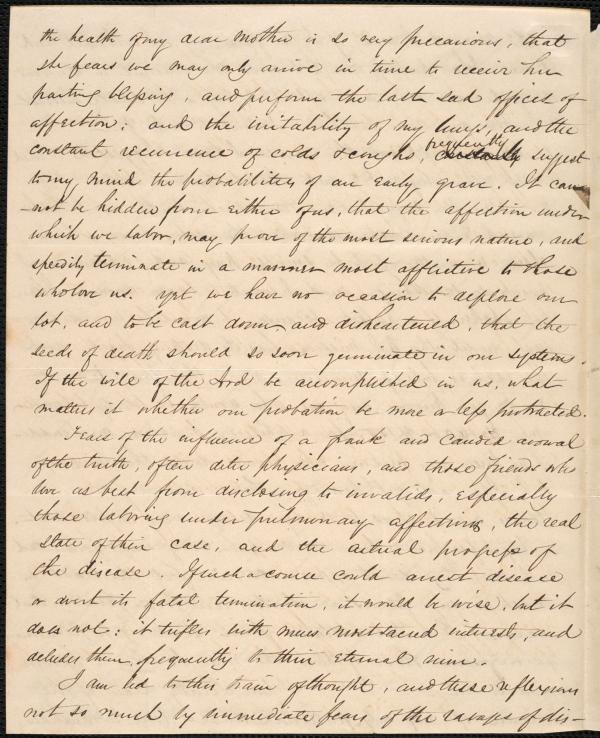 the health of my dear Mother is so very precarious, that
she fears we may only arrive in time to receive her
parting blessing, and perform the last sad offices of
affection; and the irritability of my lungs, and the
constant recurrence of colds & coughs, frequently constantly suggest
to my mind the probabilities of an early grave. It can
not be hidden from either of us, that the affection under
which we labor, may prove of the most serious nature, and
speedily terminate in a manner most afflictive to those
who love us. yet we have no occasion to deplore our
lot, and to be cast down and disheartened, that the
seeds of death should so soon germinate in our systems.
If the will of the Lord be accomplished in us, what
matters it whether our probation be more or less protracted.
Fears of the influence of a frank and candid avowal
of the truth, often deter physicians, and those friends who
love us best from disclosing to invalids, especially
those laboring under pulmonary affections, the real
state of their case, and the actual progress of
the disease. If such a course could arrest disease
or avert its fatal termination, it would be wise, but it
does not: it trifles with mens most sacred interests, and
deludes them, frequently to their eternal ruin.
I am led to this train of thought, and these reflexions
not so much by immediate fears of the ravages of dis-